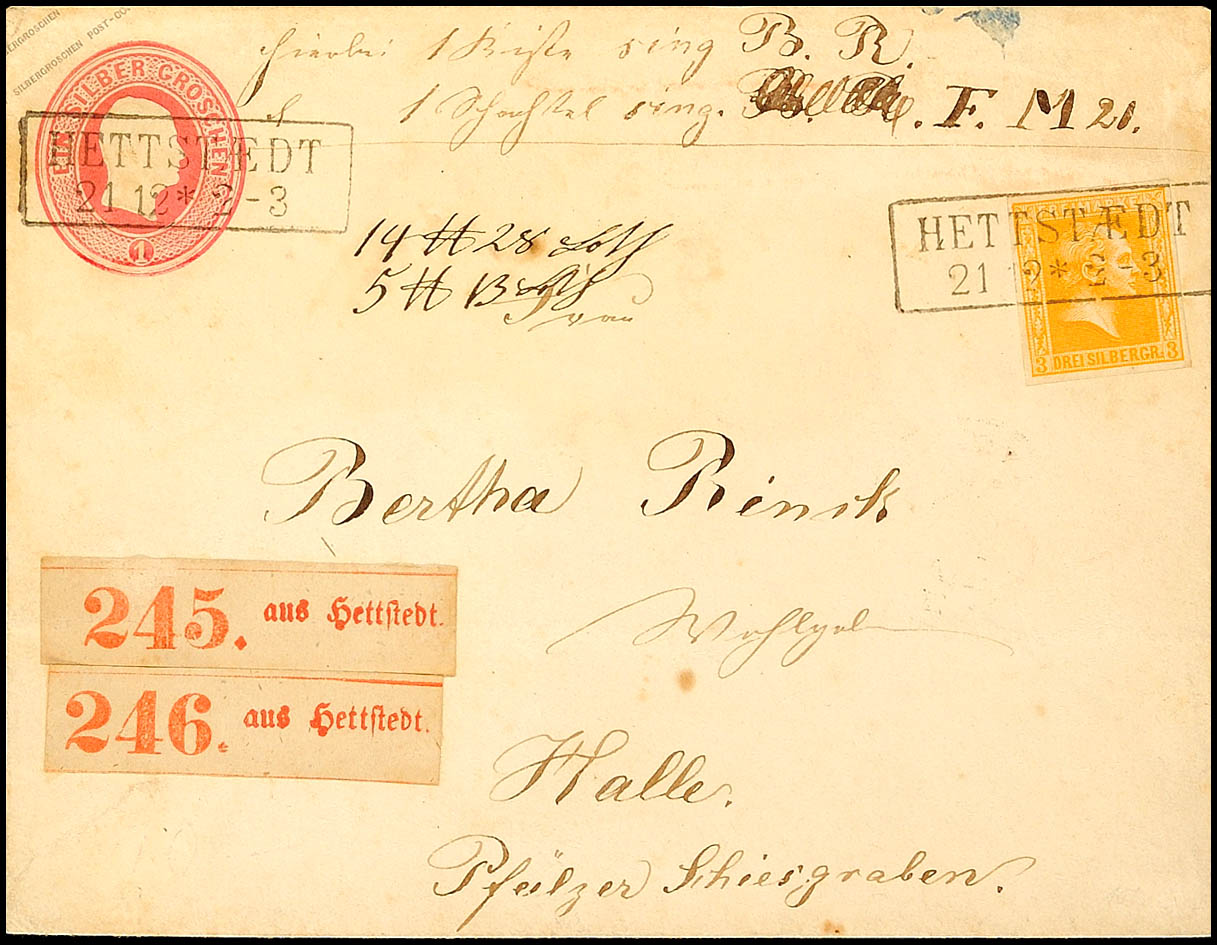 SILBERGROSCHEN POST-CO
SILBERGROSCHEN
EIN SILBER GROSCHEN
1
hierbei 1 Kiste sing B. R.
1 Schachtel sing. F. M 21.
HETTSTÆDT
21 12 * 2-3
HETTSTÆDT
21 12 * 2-3
3 DREI SILBERGR. 3
14 ℔ 28 Loth
5 ℔ 13 Loth
Frau
Bertha Rinck
245. aus Hettstedt.
Wohlgeb
246. aus Hettstedt.
Halle.
Pfälzer Schiesgraben.